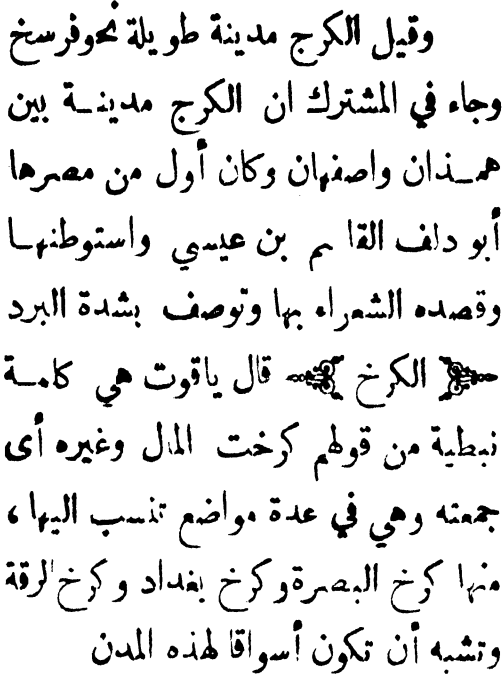 وقيل الكرج مدينة طويلة نحو فرسخ
وجاء في المشترك ان الكرج مدينة بين
همذان واصفهان وكان أول من مصرها
أبو دلف القاسم بن عيسي واستوطنها
وقصده الشعراء بها وتوصف بشدة البرد
الكرخ قال ياقوت هي كلمة
نبطية من قولهم كرخت المال وغيره أى
جمعته وهي في عدة مواضع تنسب اليها ،
منها كرخ البصرة وكرخ بغداد وكرخ الرقة
وتشبه أن تكون أسواقا لهذه المدن